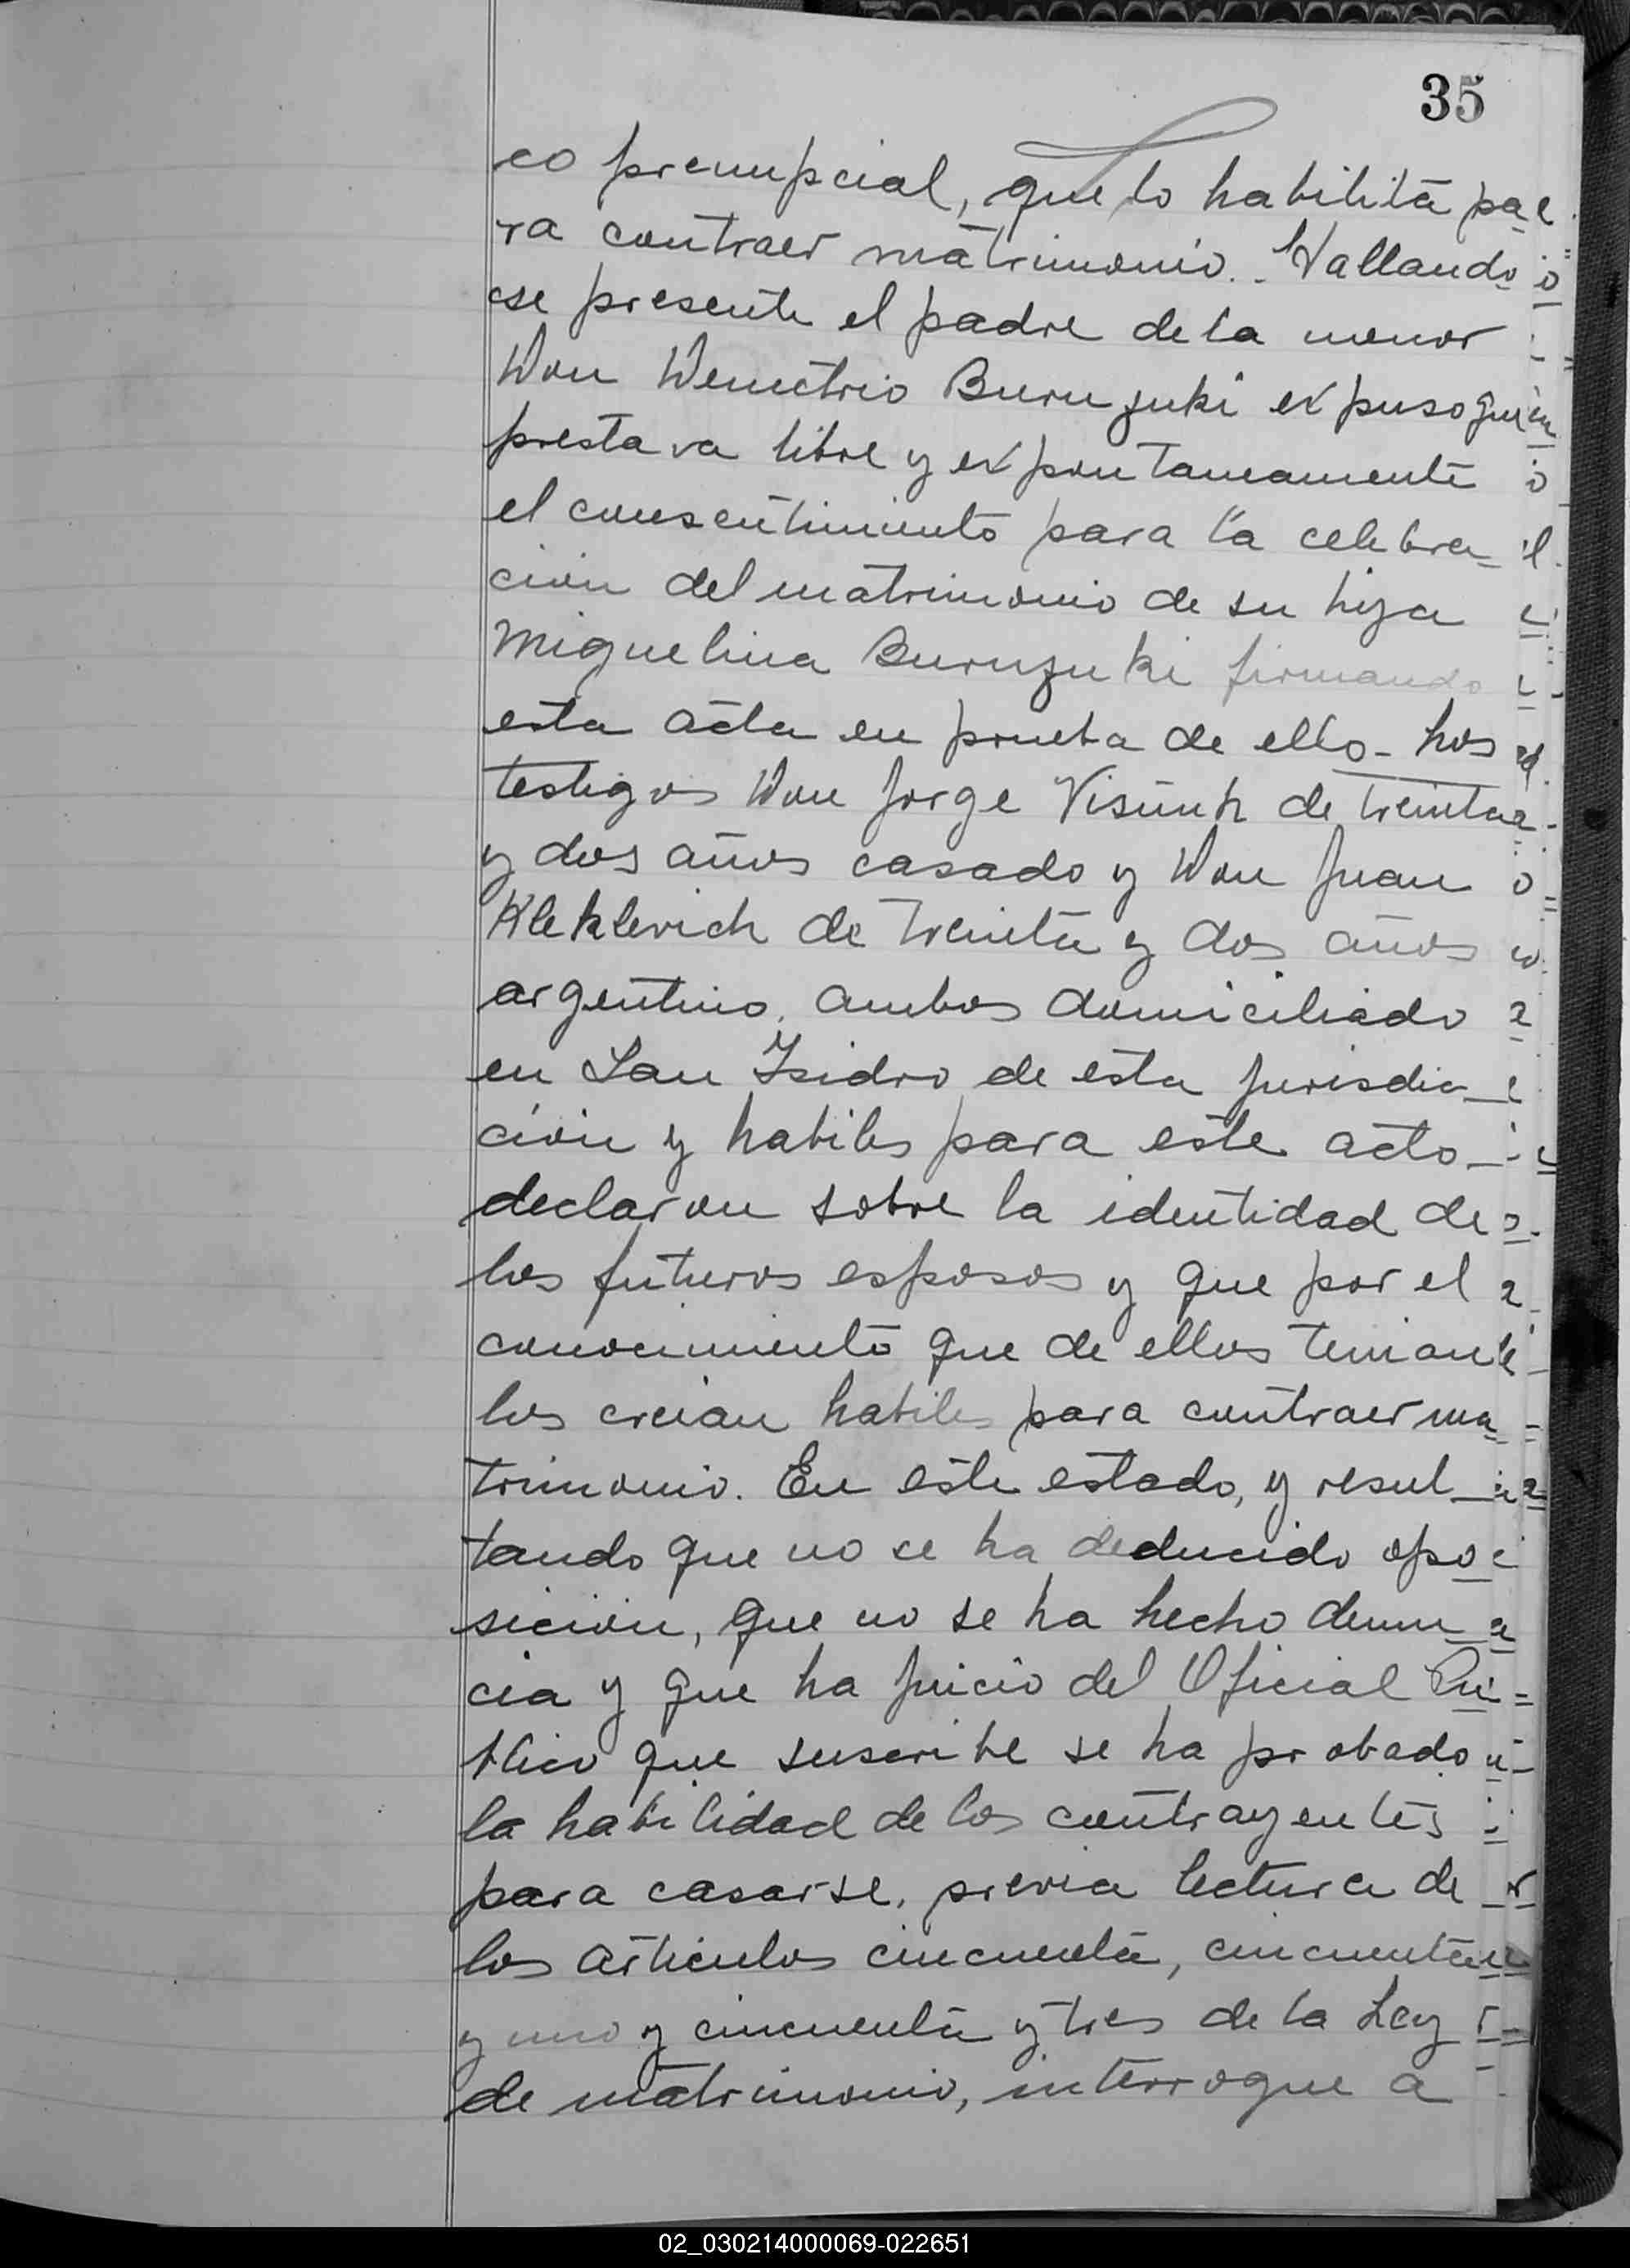 35
co prenupcial, que lo habilita pa
ra contraer matrimonio. Hallando
se presente el padre de la menor
Don Demetrio Buruzuki expuso que
prestava libre y expontaneamente
el consentimiento para la celebra_
cion del matrimonio de su hija
Miguelina Buruzuki firmando
esta acta en prueba de ello - Los
testigos Don Jorge de treinta
y dos años casado y Don Juan
Kleklevich de treinta y dos años
argentino, ambos domiciliado
en San Isidro de esta jurisdic_
ción y habiles para este acto_
declaron sobre la identidad de
los futuros esposos y que por el
conocimiento que de ellos tenian
los creian habiles para contraer ma_
trimonio. En este estado, y resul_
tando que no se ha deducido opo
sicion, que no se ha hecho denun_
cia y que ha juicio del Oficial Pú_
blico que suscribe se ha probado
la habilidad de los contrayentes
para casarse, previa lectura de
los articulos cincuenta, cincuenta
y uno y cincuenta y tres de la Ley
de matrimonio, interrogue a
02_030214000069-022651